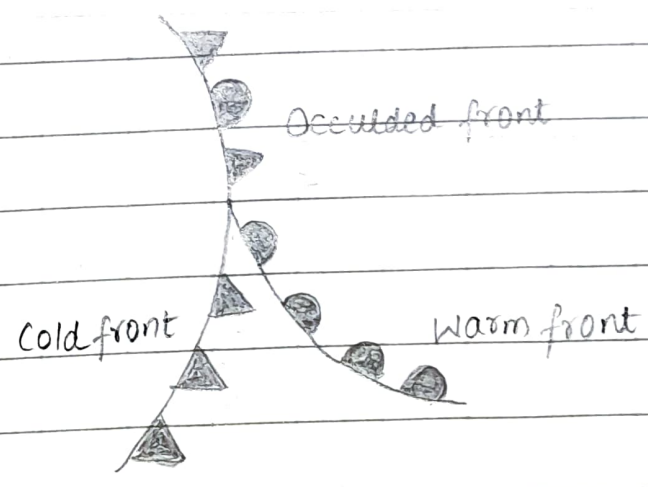 Occulded front
Cold front
Warm front